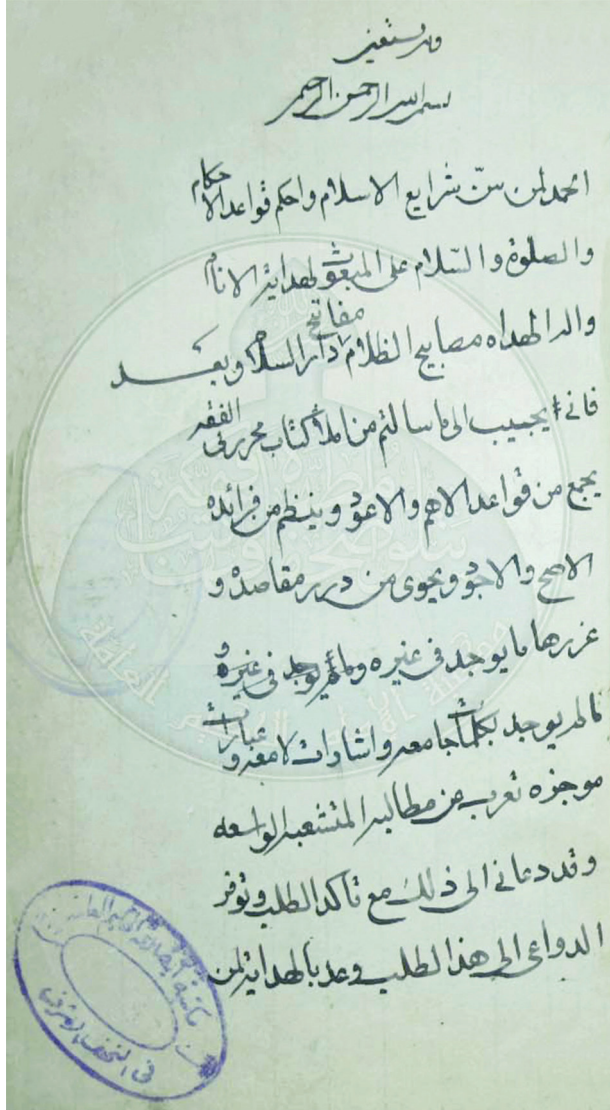 وبه نستعين
بسم الله الرحمن الرحيم
الحمد لمن سنّ شرايع الاسلام واحكم قواعد الاحكام
والصلوة والسّلام على المبعوث لهداية الانام
واله الهداه مصابيح الظلام مفاتيح دار السلام وبعد
فاني مجيب الى ما سالتم من املاء كتاب محرر في الفقه
يجمع من قواعد الاهم والاعود وينظم من فرائده
الاصح والاجود ويحوى من درر مقاصده و
غررها ما يوجد في غيره وما لم يوجد في غيره و
ما لم يوجد بكلمات جامعه واشارات لامعه وعبارات
موجزه تعرب عن مطالبه المتشعبه الواسعه
وقد دعاني الى ذلك مع تاكد الطلب وتوفر
الدواعى الى هذا الطلب وعد بالهداية لمن
مكتبة
العامة
في النجف الاشرف